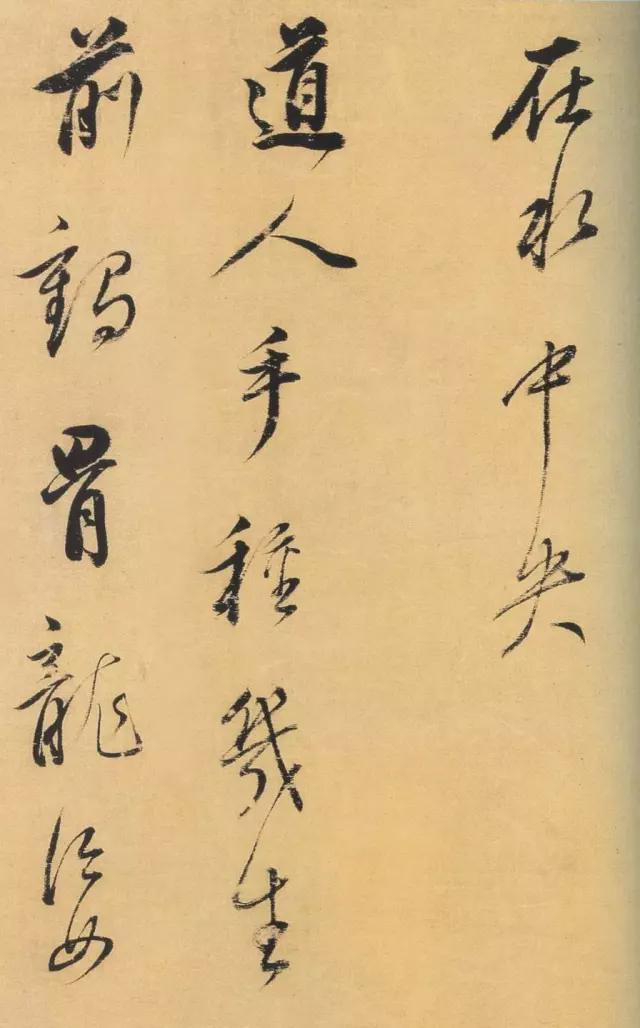 在水中央
道人手種幾生
前鶴骨龍姿